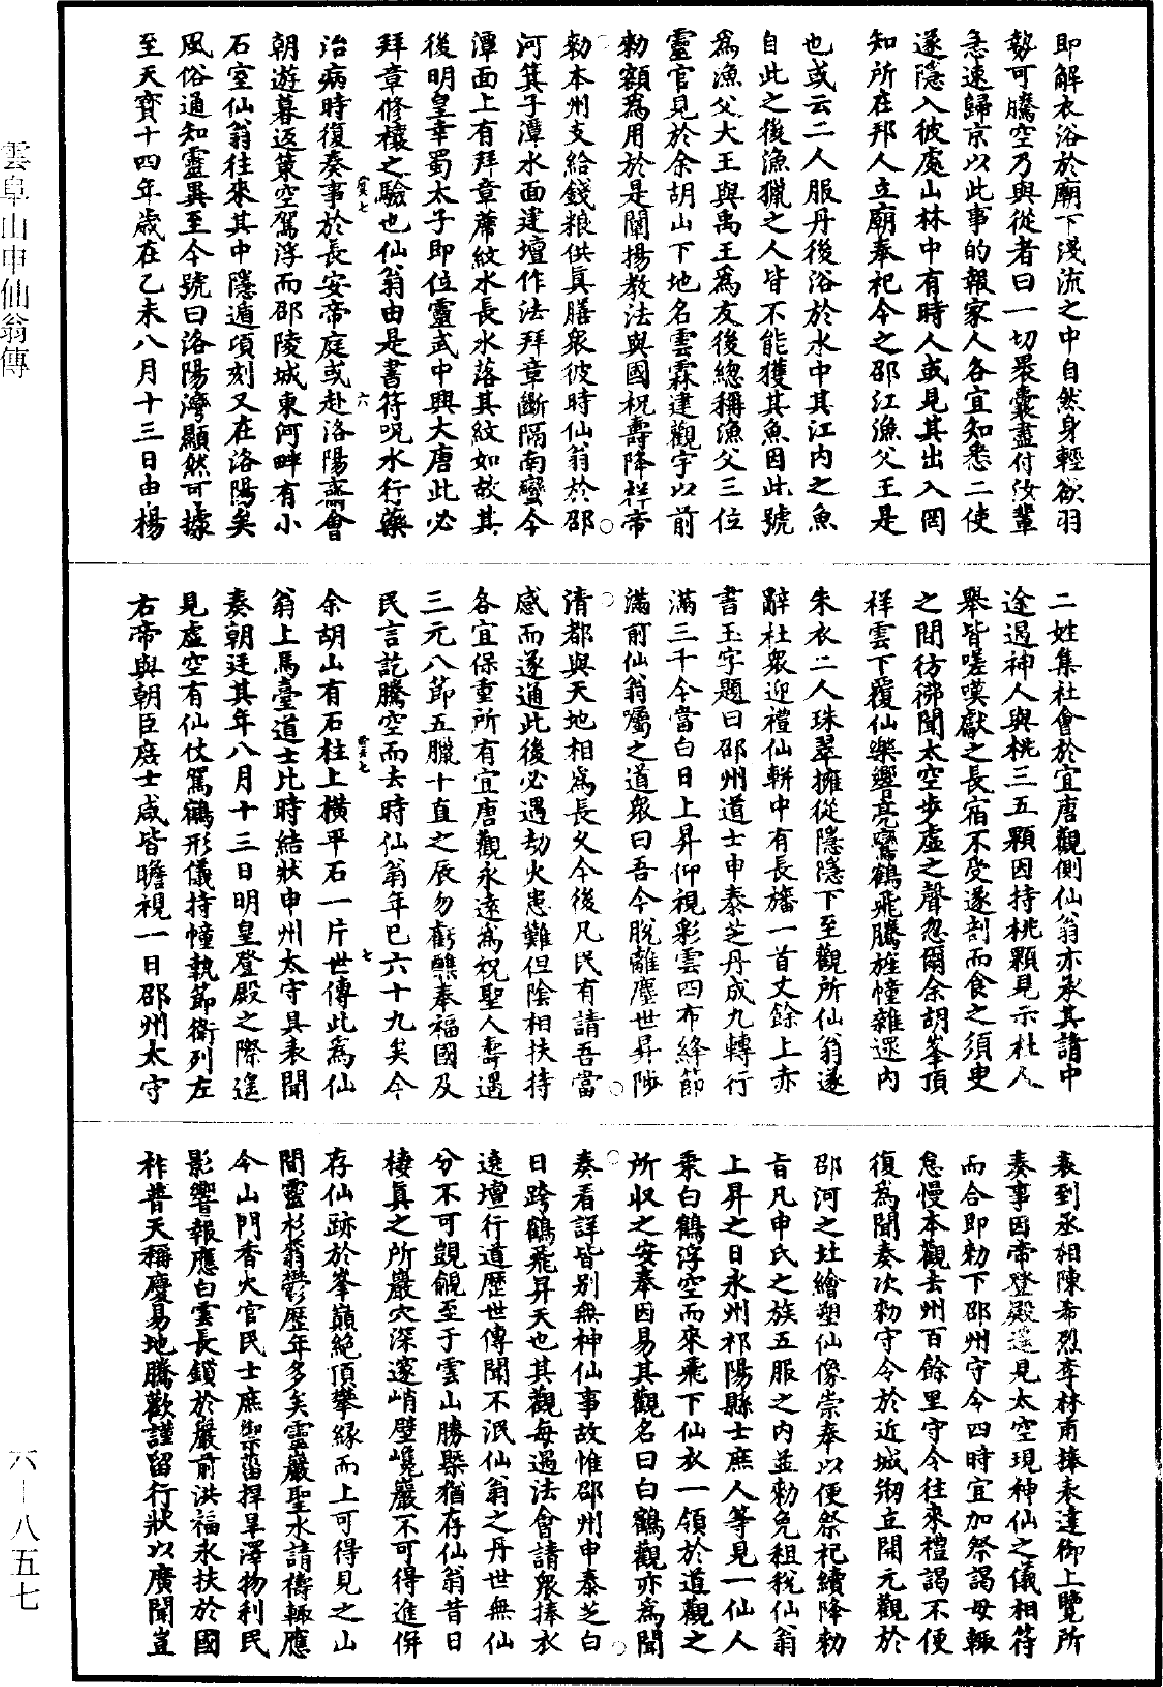 即解衣浴於廟下淺流之中自然身輕欲羽
勢可騰空乃與從者曰一切衆囊盡付汝輩
急速歸京以此事的報家人各宜知悉二使
遂隱入彼處山林中有時人或見其出入罔
知所在邦人立廟奉祀今之邵江漁父王是
也或云二人服丹後浴於水中其江内之魚
自此之後漁獵之人皆不能獲其魚因此號
爲漁父大王與禹王爲友後總稱漁父三位
靈官見於余胡山下地名雲霖建觀宇以前
勅額爲用於是闡揚教法與國祝壽降祥帝
勅本州支給錢粮供真膳衆彼時仙翁於邵
河箕子潭水面建壇作法拜章斷隔南蠻今
潭面上有拜章蓆紋水長水落其紋如故其
後明皇幸蜀太子即位靈武中興大唐此必
拜章修禳之驗也仙翁由是書符呪水行藥
治病時復奏事於長安帝庭或赴洛陽齋會
朝遊暮返策空駕浮而邵陵城東河畔有小
石室仙翁往來其中隱遁頃刻又在洛陽矣
風俗通知靈異至今號曰洛陽濟顯然可據
至天寶十四年歲在乙未八月十三日由楊
二姓集社會於宜唐觀側仙翁亦承其請中
途遇神人與桃三五顆因持桃顆見示杜人
舉皆嗟嘆獻之長宿不受遂剖而食之須臾
之間彷彿聞太空步虛之聲忽爾余胡峯頂
祥雲下覆仙樂響亮鸞鶴飛騰旌幢雜遝内
朱衣二人珠翠擁從隱隱下至觀所仙翁遂
辭杜衆迎禮仙輧中有長旛一首丈餘上赤
書玉字題曰邵州道士申泰芝丹成九轉行
滿三千今當白日上昇仰視彩雲四布絳節
滿前仙翁囑之道衆曰吾今脫離塵世昇陟
清都與天地相爲長久今後凡民有請吾當
感而遂通此後必遇劫火患難但陰相扶持
各宜保重所有宜唐觀永遠爲祝聖人壽遇
三元八節五臘十直之辰勿虧醮奉福國及
民言訖騰空而去時仙翁年巳六十九矣今
余胡山有石柱上橫平石一片世傳此爲仙
翁上馬臺道士比時結狀申州太守具表聞
奏朝廷其年八月十三日明皇登殿之際遙
見虛空有仙仗駕鶴形儀持幢執節衛列左
右帝與朝臣庶士咸皆瞻視一日邵州太守
表到丞相陳希烈李林甫捧表達御上覽所
奏事因帝登殿遙見太空現神仙之儀相符
而合即勅下邵州守令四時宜加祭謁毋輒
怠慢本觀去州百餘里守令往來禮謁不便
復爲聞奏次勅守令於近城剏立開元觀於
邵河之壯繪塑仙像崇奉以便祭祀續降勅
旨凡申氏之族五服之内並勅免租稅仙翁
上昇之日永州祁陽縣士庶人等見一仙人
乘白鶴浮空而來飛下仙衣一領於道觀之
所收之安奉因易其觀名曰白鶴觀亦爲聞
奏看詳皆别無神仙事故惟邵州申泰芝白
日跨鶴飛昇天也其觀每遇法會請衆捧衣
遶壇行道歷世傳聞不泯仙翁之丹世無仙
分不可覬覦至于雲山勝槩猶存仙翁昔日
棲真之所巖穴深邃峭壁巉巖不可得進併
存仙跡於峯巔絶頂攀緣而上可得見之山
間靈杉蓊鬱歷年多矣靈巖聖水請禱輒應
今山門香火官民士庶禦菑捍旱澤物利民
影響報應白雲長鎖於巖前洪福永扶於國
祚普天稱慶易地騰歡謹留行狀以廣聞豈
雲阜山申仙翁傳
六—八五七